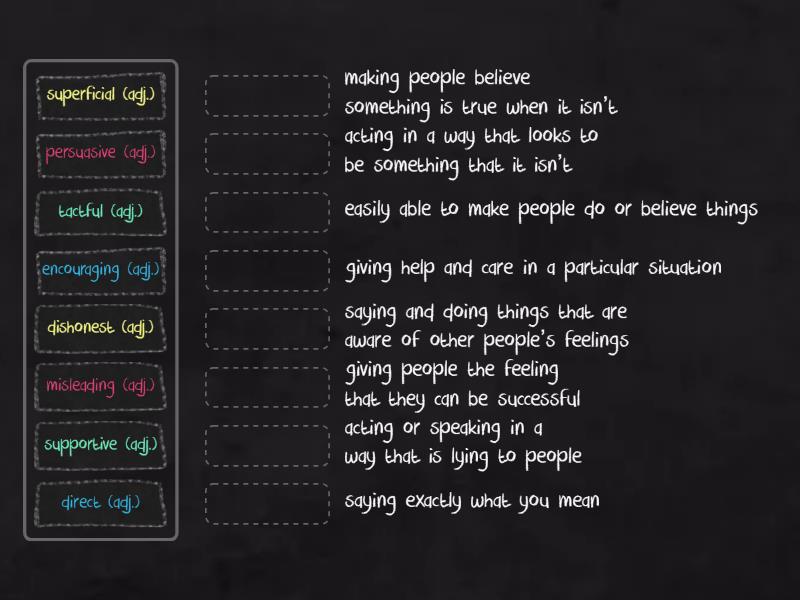 superficial (adj.)
persuasive (adj.)
tactful (adj.)
encouraging (adj.)
dishonest (adj.)
misleading (adj.)
supportive (adj.)
direct (adj.)
making people believe
something is true when it isn't
acting in a way that looks to
be something that it isn't
easily able to make people do or believe things
giving help and care in a particular situation
saying and doing things that are
aware of other people's feelings
giving people the feeling
that they can be successful
acting or speaking in a
way that is lying to people
saying exactly what you mean